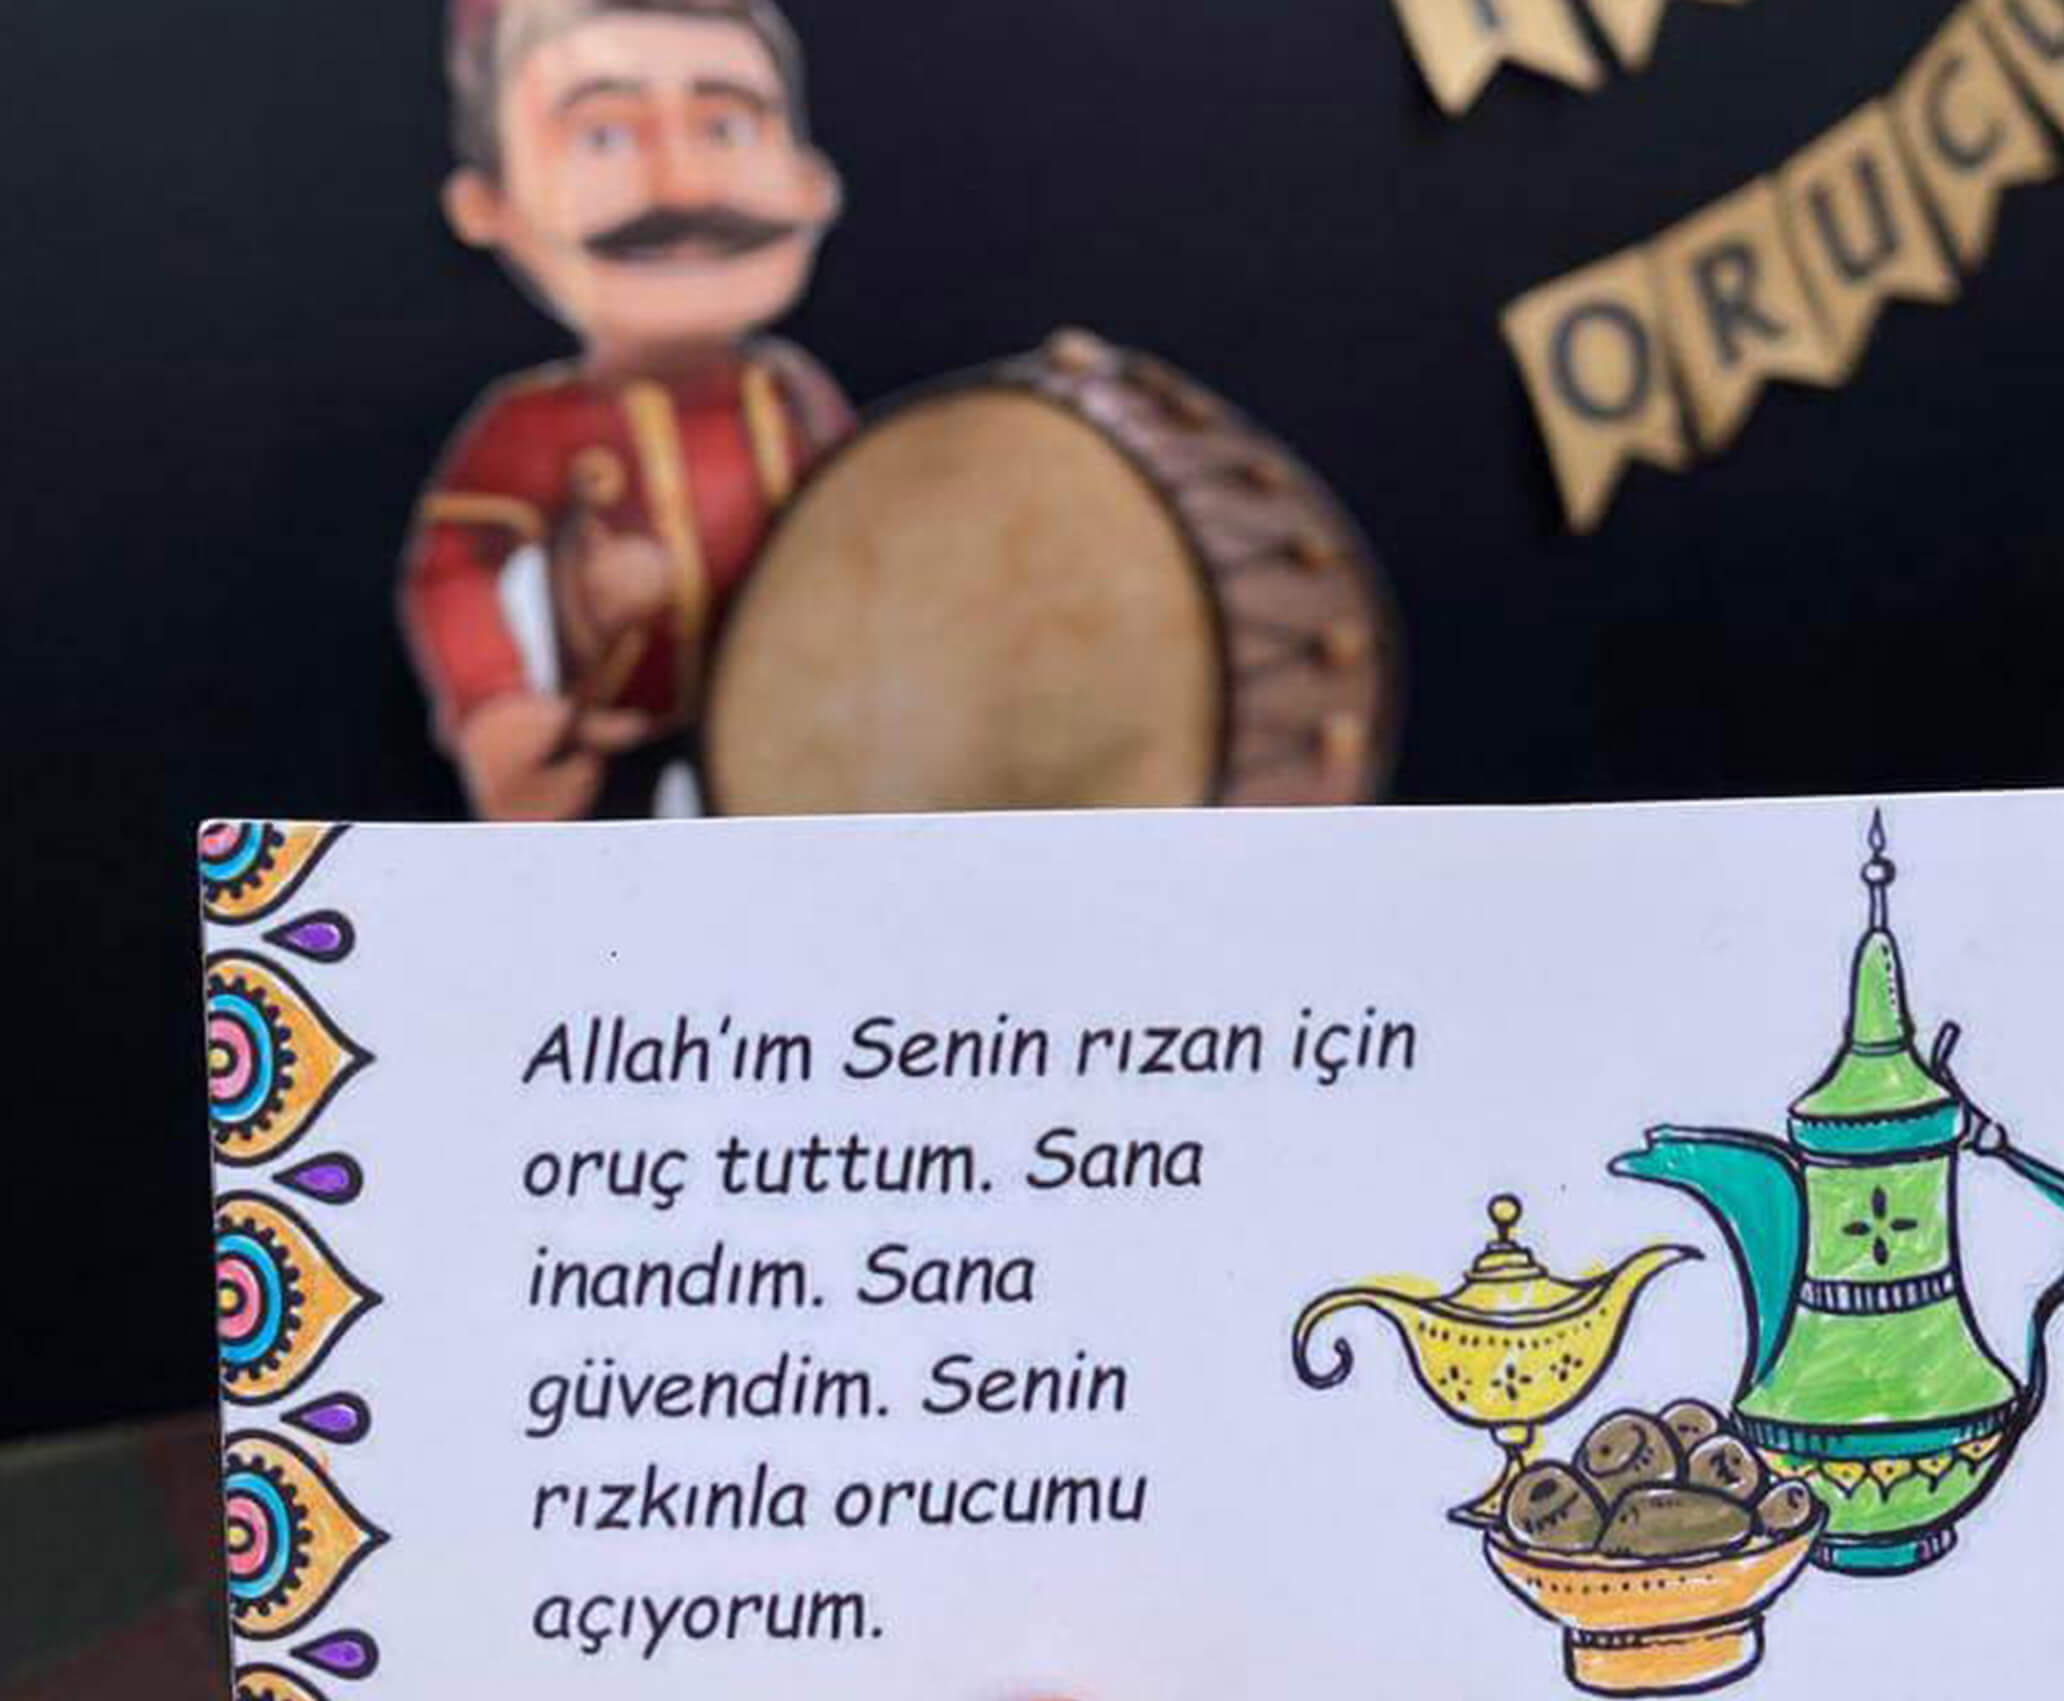 ORUC
Allah'ım Senin rızan için
oruç tuttum. Sana
inandım. Sana
güvendim. Senin
rızkınla orucumu
açıyorum.